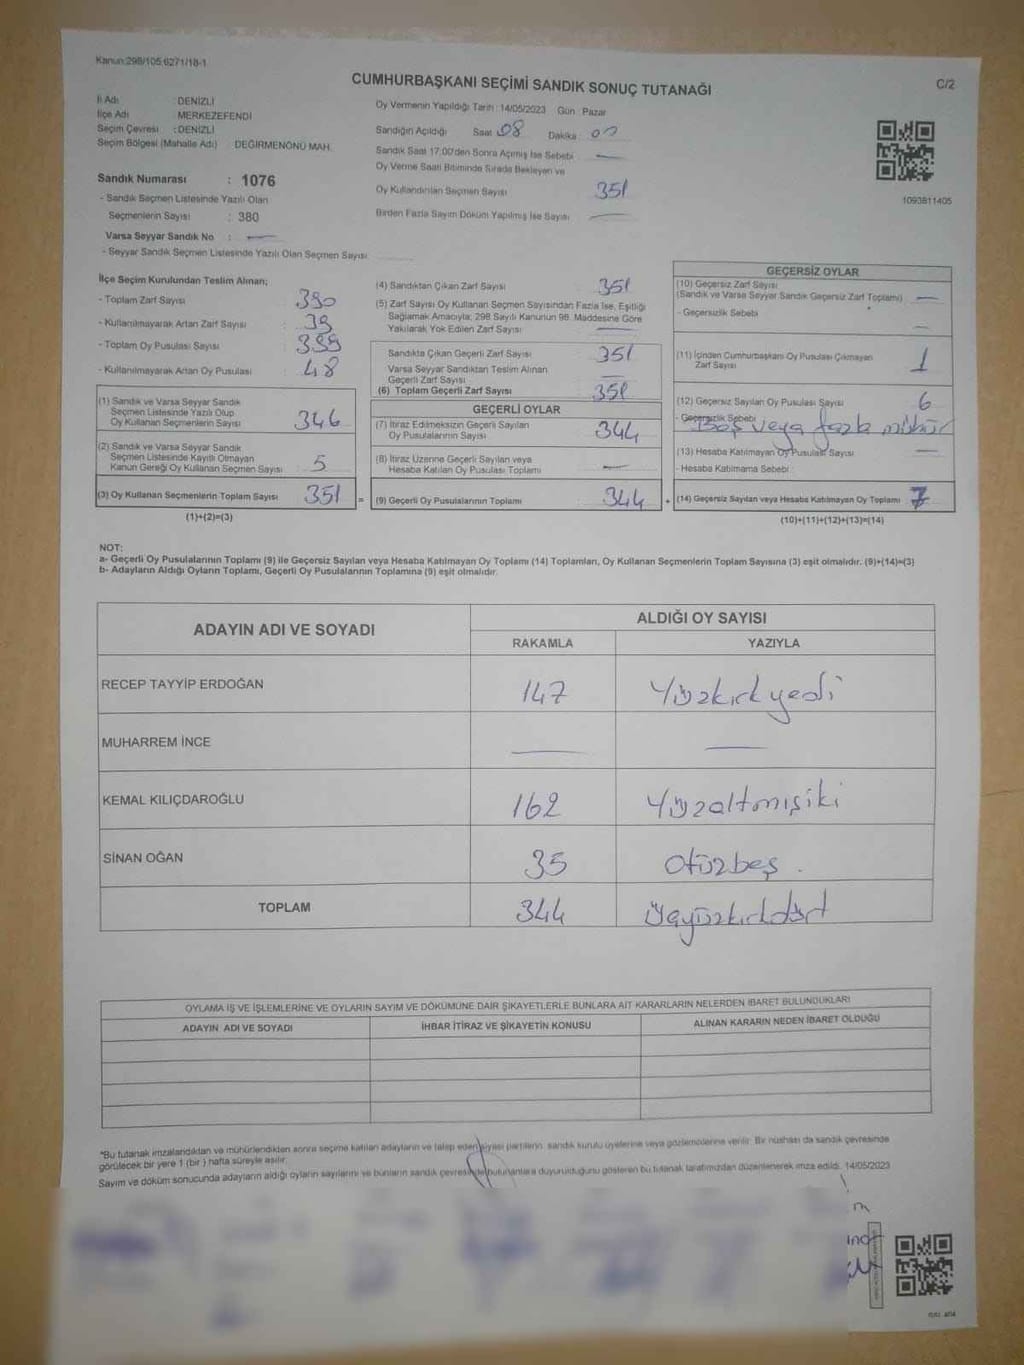 Kanun:298/105.6271/18-1
CUMHURBAŞKANI SEÇİMİ SANDIK SONUÇ TUTANAĞI
C/2
İl Adı : DENİZLİ
İlçe Adı : MERKEZEFENDİ
Seçim Çevresi : DENİZLİ
Seçim Bölgesi (Mahalle Adı) DEĞİRMENÖNÜ MAH.
Sandık Numarası : 1076
- Sandık Seçmen Listesinde Yazılı Olan
Seçmenlerin Sayısı : 380
Varsa Seyyar Sandık No : —
- Seyyar Sandık Seçmen Listesinde Yazılı Olan Seçmen Sayısı
Oy Vermenin Yapıldığı Tarih : 14/05/2023 Gün : Pazar
Sandığın Açıldığı Saat 08 Dakika : 00
Sandık Saat 17:00'den Sonra Açılmış İse Sebebi —
Oy Verme Saati Bitiminde Sırada Bekleyen ve
Oy Kullandırılan Seçmen Sayısı 351
Birden Fazla Sayım Döküm Yapılmış İse Sayısı —
1093811405
İlçe Seçim Kurulundan Teslim Alınan;
- Toplam Zarf Sayısı : 390
- Kullanılmayarak Artan Zarf Sayısı : 39
- Toplam Oy Pusulası Sayısı : 399
- Kullanılmayarak Artan Oy Pusulası : 48
(1) Sandık ve Varsa Seyyar Sandık
Seçmen Listesinde Yazılı Olup
Oy Kullanan Seçmenlerin Sayısı : 346
(2) Sandık ve Varsa Seyyar Sandık
Seçmen Listesinde Kayıtlı Olmayan
Kanun Gereği Oy Kullanan Seçmen Sayısı : 5
(3) Oy Kullanan Seçmenlerin Toplam Sayısı : 351
(1)+(2)=(3)
(4) Sandıktan Çıkan Zarf Sayısı 351
(5) Zarf Sayısı Oy Kullanan Seçmen Sayısından Fazla İse, Eşitliği
Sağlamak Amacıyla; 298 Sayılı Kanunun 98. Maddesine Göre
Yakılarak Yok Edilen Zarf Sayısı —
Sandıkta Çıkan Geçerli Zarf Sayısı 351
Varsa Seyyar Sandıktan Teslim Alınan
Geçerli Zarf Sayısı —
(6) Toplam Geçerli Zarf Sayısı 351
GEÇERLİ OYLAR
(7) İtiraz Edilmeksizin Geçerli Sayılan
Oy Pusulalarının Sayısı 344
(8) İtiraz Üzerine Geçerli Sayılan veya
Hesaba Katılan Oy Pusulası Toplamı —
= (9) Geçerli Oy Pusulalarının Toplamı 344 +
GEÇERSİZ OYLAR
(10) Geçersiz Zarf Sayısı
(Sandık ve Varsa Seyyar Sandık Geçersiz Zarf Toplamı) —
- Geçersizlik Sebebi : —
(11) İçinden Cumhurbaşkanı Oy Pusulası Çıkmayan
Zarf Sayısı 1
(12) Geçersiz Sayılan Oy Pusulası Sayısı 6
- Geçersizlik Sebebi : Boş veya fazla mühür
(13) Hesaba Katılmayan Oy Pusulası Sayısı —
- Hesaba Katılmama Sebebi :
(14) Geçersiz Sayılan veya Hesaba Katılmayan Oy Toplamı 7
(10)+(11)+(12)+(13)=(14)
NOT:
a- Geçerli Oy Pusulalarının Toplamı (9) ile Geçersiz Sayılan veya Hesaba Katılmayan Oy Toplamı (14) Toplamları, Oy Kullanan Seçmenlerin Toplam Sayısına (3) eşit olmalıdır. (9)+(14)=(3)
b- Adayların Aldığı Oyların Toplamı, Geçerli Oy Pusulalarının Toplamına (9) eşit olmalıdır.
ADAYIN ADI VE SOYADI
ALDIĞI OY SAYISI
RAKAMLA YAZIYLA
RECEP TAYYİP ERDOĞAN 147 Yüzkırkyedi
MUHARREM İNCE — —
KEMAL KILIÇDAROĞLU 162 Yüzaltmışiki
SİNAN OĞAN 35 Otüzbeş .
TOPLAM 344 Üçyüzkırkdört
OYLAMA İŞ VE İŞLEMLERİNE VE OYLARIN SAYIM VE DÖKÜMÜNE DAİR ŞİKAYETLERLE BUNLARA AİT KARARLARIN NELERDEN İBARET BULUNDUKLARI
ADAYIN ADI VE SOYADI İHBAR İTİRAZ VE ŞİKAYETİN KONUSU ALINAN KARARIN NEDEN İBARET OLDUĞU
*Bu tutanak imzalandıktan ve mühürlendikten sonra seçime katılan adayların ve talep eden siyasi partilerin sandık kurulu üyelerine veya gözlemcilerine verilir. Bir nüshası da sandık çevresinde
görülecek bir yere 1 (bir) hafta süreyle asılır.
Sayım ve döküm sonucunda adayların aldığı oyların sayılarını ve bunların sandık çevresinde bulunanlara duyurulduğunu gösteren bu tutanak tarafımızdan düzenlenerek imza edildi. 14/05/2023